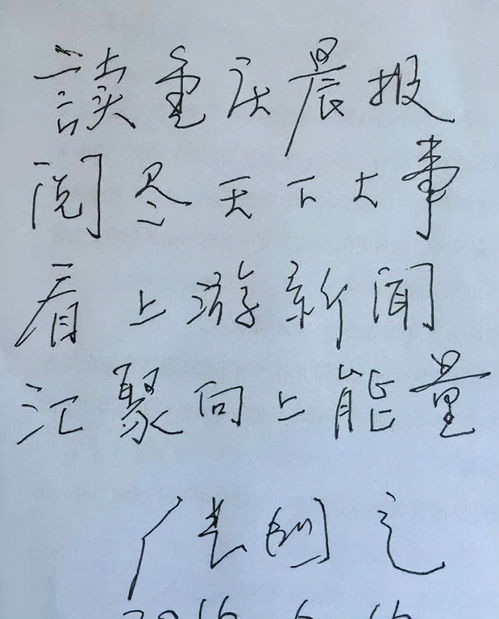 讀重庆晨报
阅尽天下大事
看上游新闻
汇聚向上能量